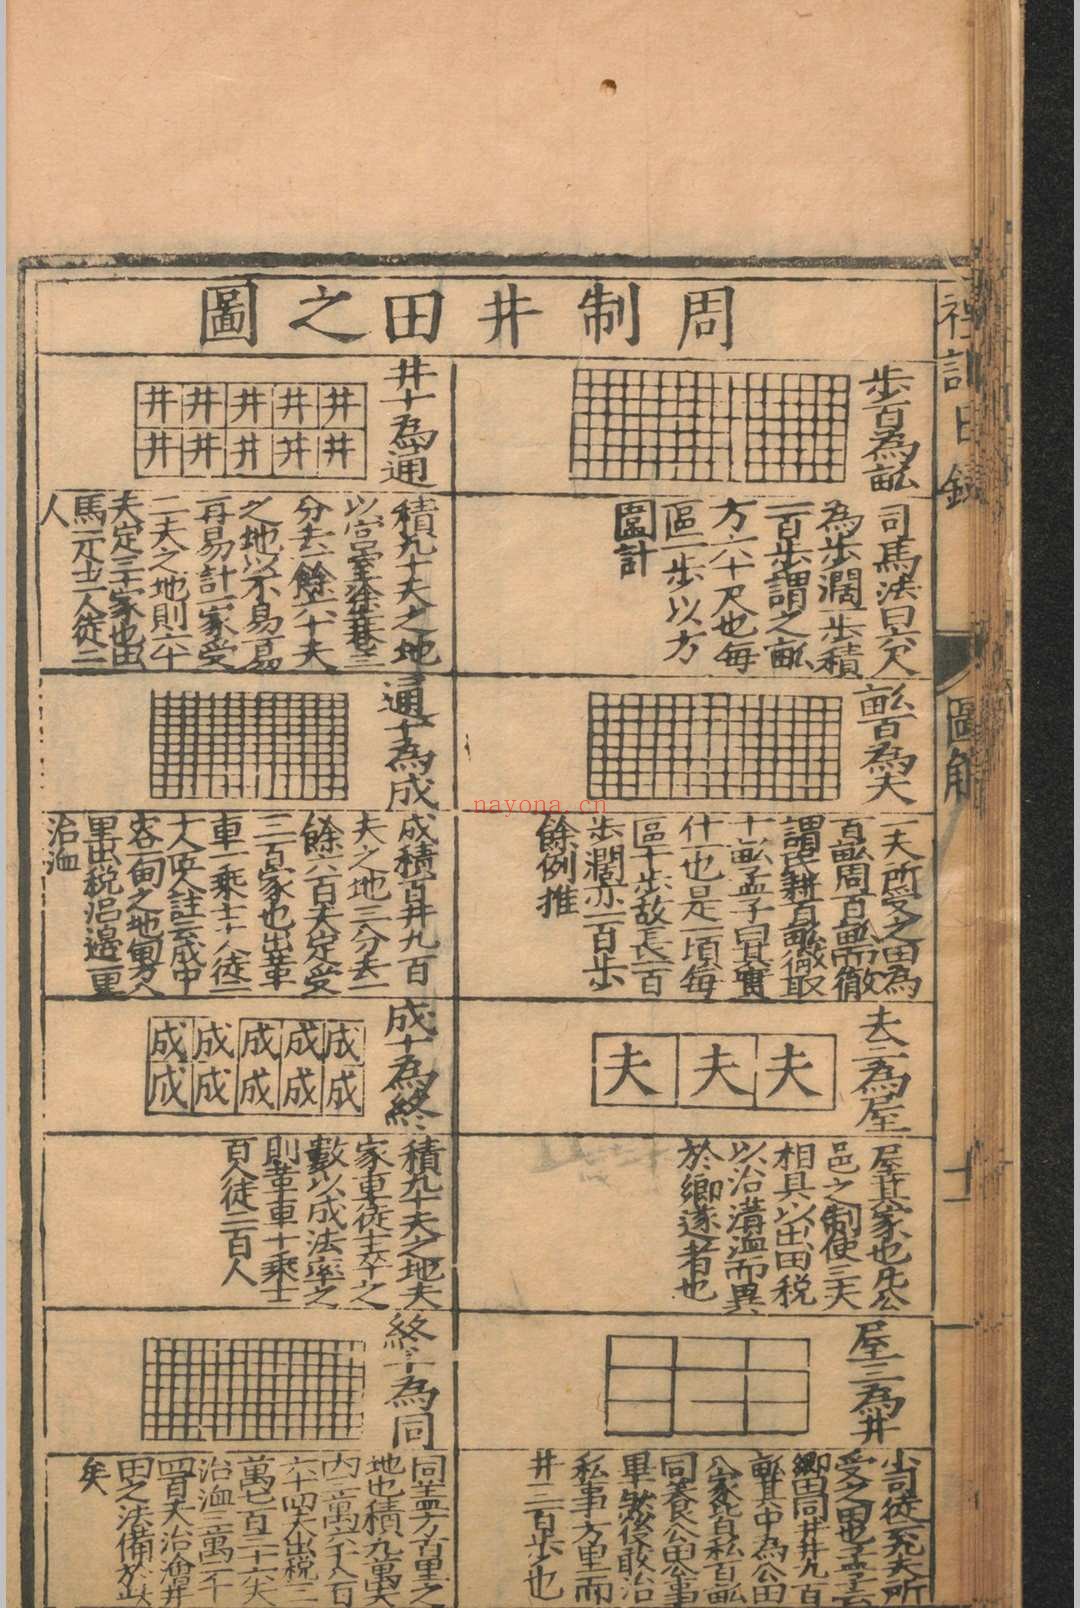 周制井田之圖
步百為畝
司馬法曰六尺
為步濶一步積
一百步謂之畝
方六十尺也每
區一步以方
區計
畝百為夫
一夫所受之田為
百畝周百畝而徹
謂民耕百畝徹取
十畝孟子曰其實
什一也是一頃每
區十步故長一百
步濶亦一百步
餘例推
夫三為屋
夫 夫 夫
屋其家也凡公
邑之制使三夫
相具以出田税
以治溝洫而異
於鄉遂者也
屋三為井
小司徒
受之田也孟子云
鄉田同井井九百
畝其中為公田
八家皆私百畝
同養公田公事
畢然後敢治
私事方里而
井三百步也
井十為通
井 井 井 井 井
井 井 井 井 井
積九十夫之地
以宮室塗巷三
分去一餘六十夫
之地以不易一易
再易計一家受
二夫之地則六十
夫定三十家也出
馬一疋士一人徒二
人
通十為成
成積百井九百
夫之地三分去一
餘六百夫定受
三百家也出革
車一乘士十人徒二
十人
容甸之地甸方八
里出税沿邊一里
治洫
成十為終
成 成 成 成 成
成 成 成 成 成
積九千夫之地夫
家車徒士卒之
數以成法率之
則革車十乘士
百人徒二百人
終十為同
同蓋方百里之
地也積九萬夫
内
六十四夫出税三
萬七百三十六夫
治洫三萬二千
四百夫治澮井
田之法備於此
矣
禮記日錄
圖解
nayona.cn